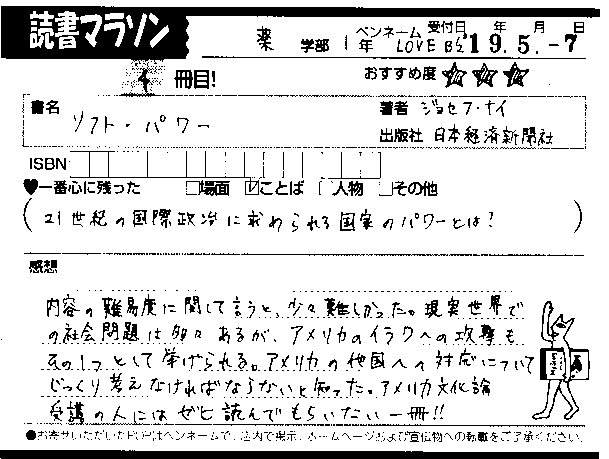 読書マラソン
薬 学部 1年 ペンネーム LOVE B'z 受付日 年 月 日 19.5.-7
4 冊目!
おすすめ度 ☆☆☆
書名 ソフト・パワー
著者 ジョセフ・ナイ
出版社 日本経済新聞社
ISBN
♥一番心に残った □場面 ☑ことば □人物 □その他
(21世紀の国際政治に求められる国家のパワーとは?)
感想
内容の難易度に関して言うと、少々難しかった。現実世界で
の社会問題は多々あるが、アメリカのイラクへの攻撃も
その1つとして挙げられる。アメリカの他国への対応について
じっくり考えなければならないと知った。アメリカ文化論
受講の人にはぜひ読んでもらいたい一冊!!
●お寄せいただいたPOPはペンネームで、店内で掲示、ホームページおよび宣伝物への転載をご了承ください。